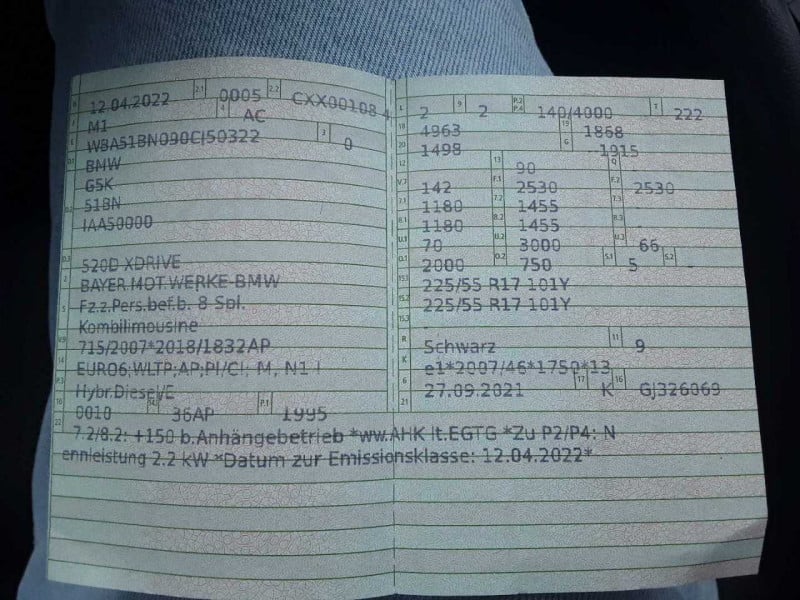 B 12.04.2022 2.1 0005 2.2 CXX00108 4
J M1 4 AC
E WBA51BN090CJ50322 3 0
D.1 BMW
G5K
D.2 51BN
IAA50000
D.3 520D XDRIVE
2 BAYER.MOT.WERKE-BMW
5 Fz.z.Pers.bef.b. 8 Spl.
Kombilimousine
V.9 715/2007*2018/1832AP
14 EURO6;WLTP;AP;PI/CI; M, N1 I
P.3 Hybr.Diesel/E
10 0010 14.1 36AP P.1 1995
L 2 9 2 P.2 P.4 140/4000 T 222
18 4963 19 1868
20 1498 G 1915
12 - 13 90 Q -
V.7 142 F.1 2530 F.2 2530
7.1 1180 7.2 1455 7.3 -
8.1 1180 8.2 1455 8.3 -
U.1 70 U.2 3000 U.3 66
O.1 2000 O.2 750 S.1 5 S.2 -
15.1 225/55 R17 101Y
15.2 225/55 R17 101Y
15.3 -
R Schwarz 11 9
K e1*2007/46*1750*13
6 27.09.2021 17 K 16 GJ326069
21
22 7.2/8.2: +150 b.Anhängebetrieb *ww.AHK lt.EGTG *Zu P2/P4: N
ennleistung 2.2 kW *Datum zur Emissionsklasse: 12.04.2022*